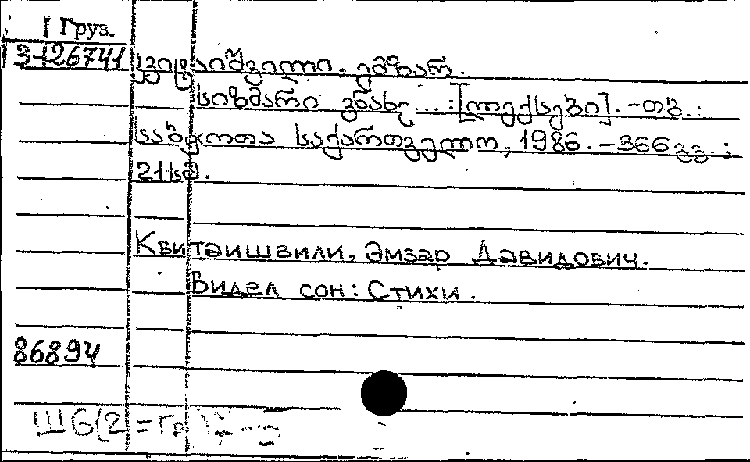 Груз.
3-126741
კვიტაიშვილი, ემზარ.
სიზმარი ვნახე...: [ლექსები]. - თბ.:
საბჭოთა საქართველო, 1986. - 366 გვ.;
21 სმ.
Квитаишвили, Эмзар Давидович.
Видел сон: Стихи.
86894
Ш6(2=Гр)